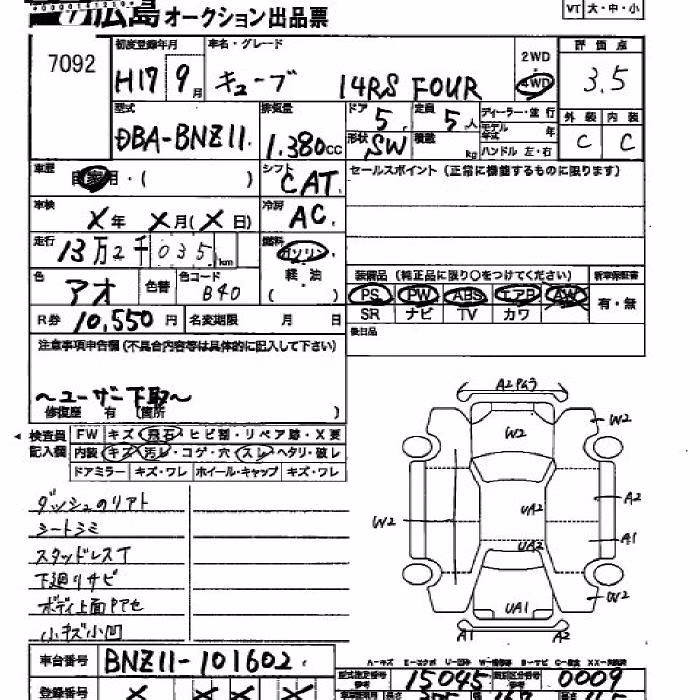 広島オークション出品票
VT 大・中・小
7092
初度登録年月
H17 9月
車名・グレード
キューブ 14RS FOUR
2WD
4WD
評価点
3.5
型式
DBA-BNZ11
排気量
1.380cc
ドア
5
定員
5人
形状
SW
積載
kg
ディーラー・並行
モデル年式 年
ハンドル 左・右
外装
C
内装
C
車歴
自家用・( )
シフト
CAT
セールスポイント（正常に機能するものに限ります）
車検
X年 X月(X日)
冷房
AC
走行
13万2千035km
燃料
ガソリン
軽油
( )
色
アオ
色替
色コード
B40
装備品（純正品に限り○をつけてください）
新車保証書
PS PW ABS エアB AW
有・無
SR ナビ TV カワ
R券 10,550円
名変期限 月 日
後日品
注意事項申告欄（不具合内容等は具体的に記入して下さい）
～ユーザー下取～
修復歴 有 (箇所 )
検査員記入欄
FW キズ・飛石・ヒビ割・リペア跡・X要
内装 キズ・汚レ・コゲ・穴・スレ・ヘタリ・破レ
ドアミラー キズ・ワレ ホイール・キャップ キズ・ワレ
ダッシュのリアト
シートシミ
スタッドレスT
下廻りサビ
ボディ上面Pアセ
小キズ小凹
A2 Pムラ
W2
W2
UA2
A2
W2
A1
UA2
W2
UA1
A1
A2
車台番号 BNZ11-101602
A-キズ E-エクボ U-凹 W-補修跡 S-サビ C-腐食 XX-交換済
15045
0009
登録番号 X X X X